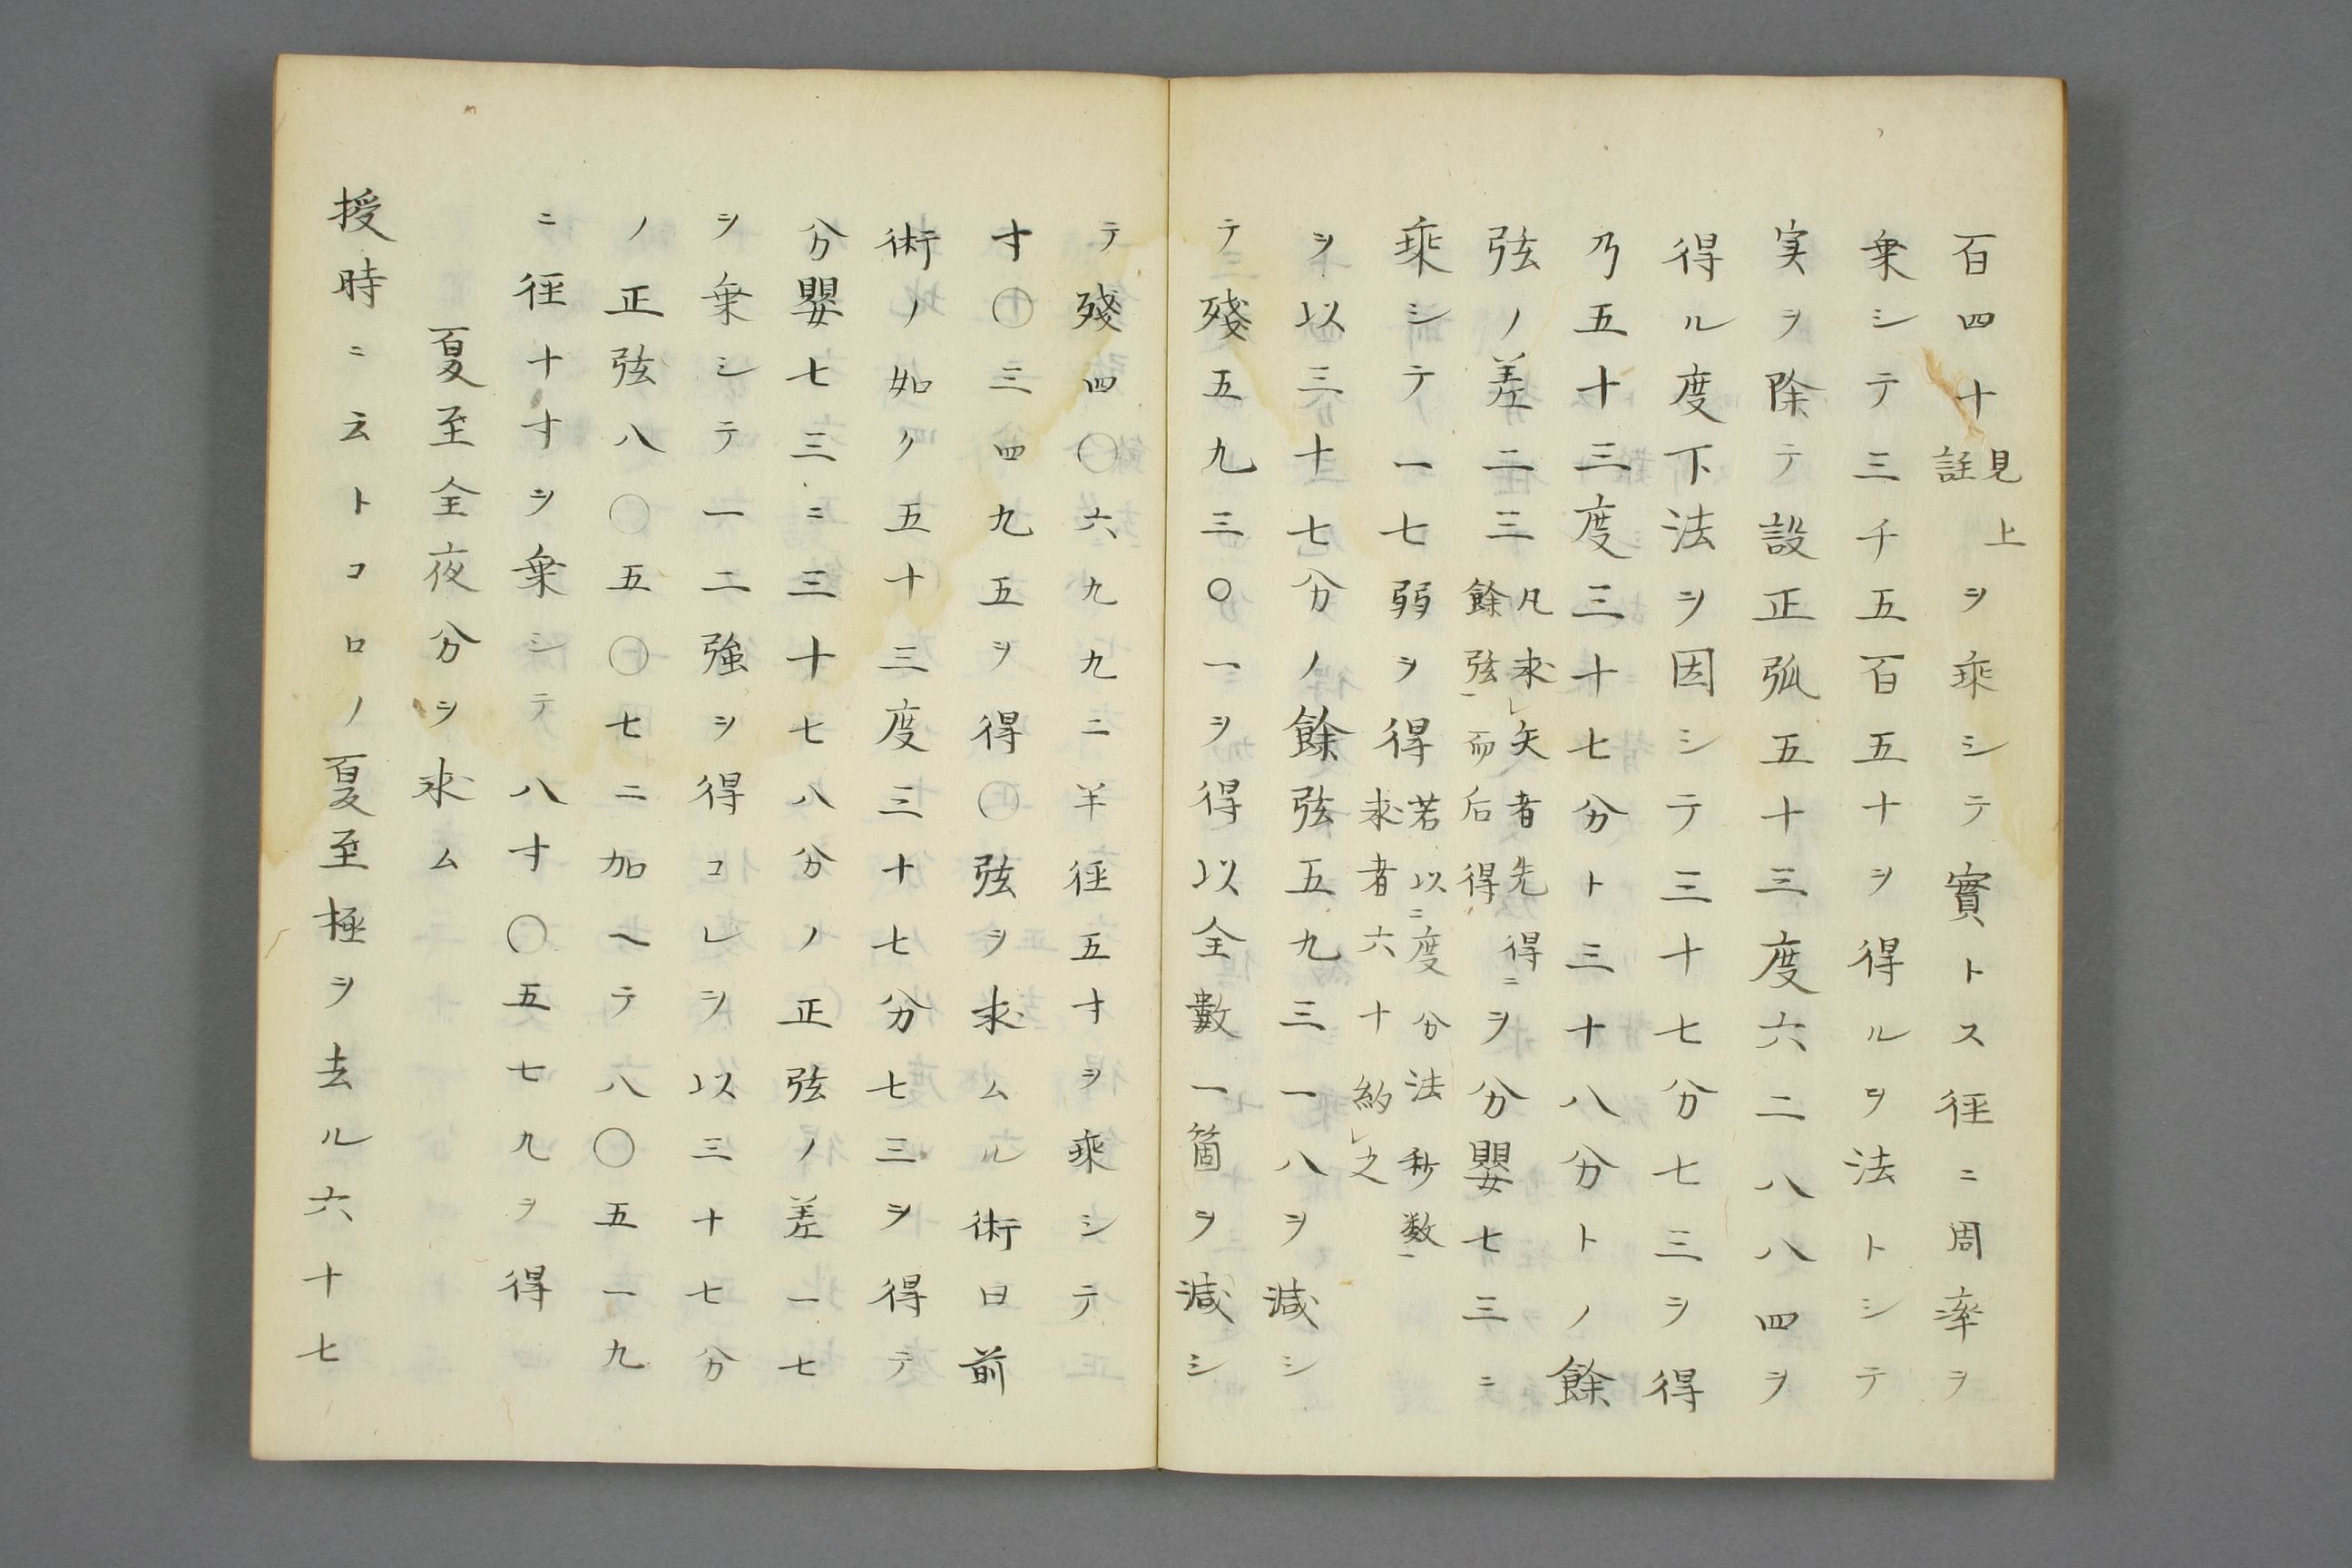 百四十見上註ヲ乗シテ實トス径ニ周率ヲ
乗シテ三千五百五十ヲ得ルヲ法トシテ
実ヲ除テ設正弧五十三度六二八八四ヲ
得ル度下法ヲ因シテ三十七分七三ヲ得
乃五十三度三十七分ト三十八分トノ餘
弦ノ差二三凡求㆑矢者先得㆓餘弦㆒而后得ヲ分嬰七三ニ
乗シテ一七弱ヲ得若以㆓度分法秒数㆒求者六十約㆑之
ヲ以三十七分ノ餘弦五九三一八ヲ減シ
テ殘五九三〇一ヲ得以全數一箇ヲ減シ
テ殘四〇六九九ニ半径五寸ヲ乗シテ
寸〇三四九五ヲ得〇弦ヲ求ムル術曰前
術ノ如ク五十三度三十七分七三ヲ得テ
分嬰七三ニ三十七八分ノ正弦ノ差一七
ヲ乗シテ一二強ヲ得コレヲ以三十七分
ノ正弦八〇五〇七ニ加ヘテ八〇五一九
ニ径十寸ヲ乗シテ八寸〇五七九ヲ得
夏至全夜分ヲ求ム
授時ニ云トコロノ夏至極ヲ去ル六十七